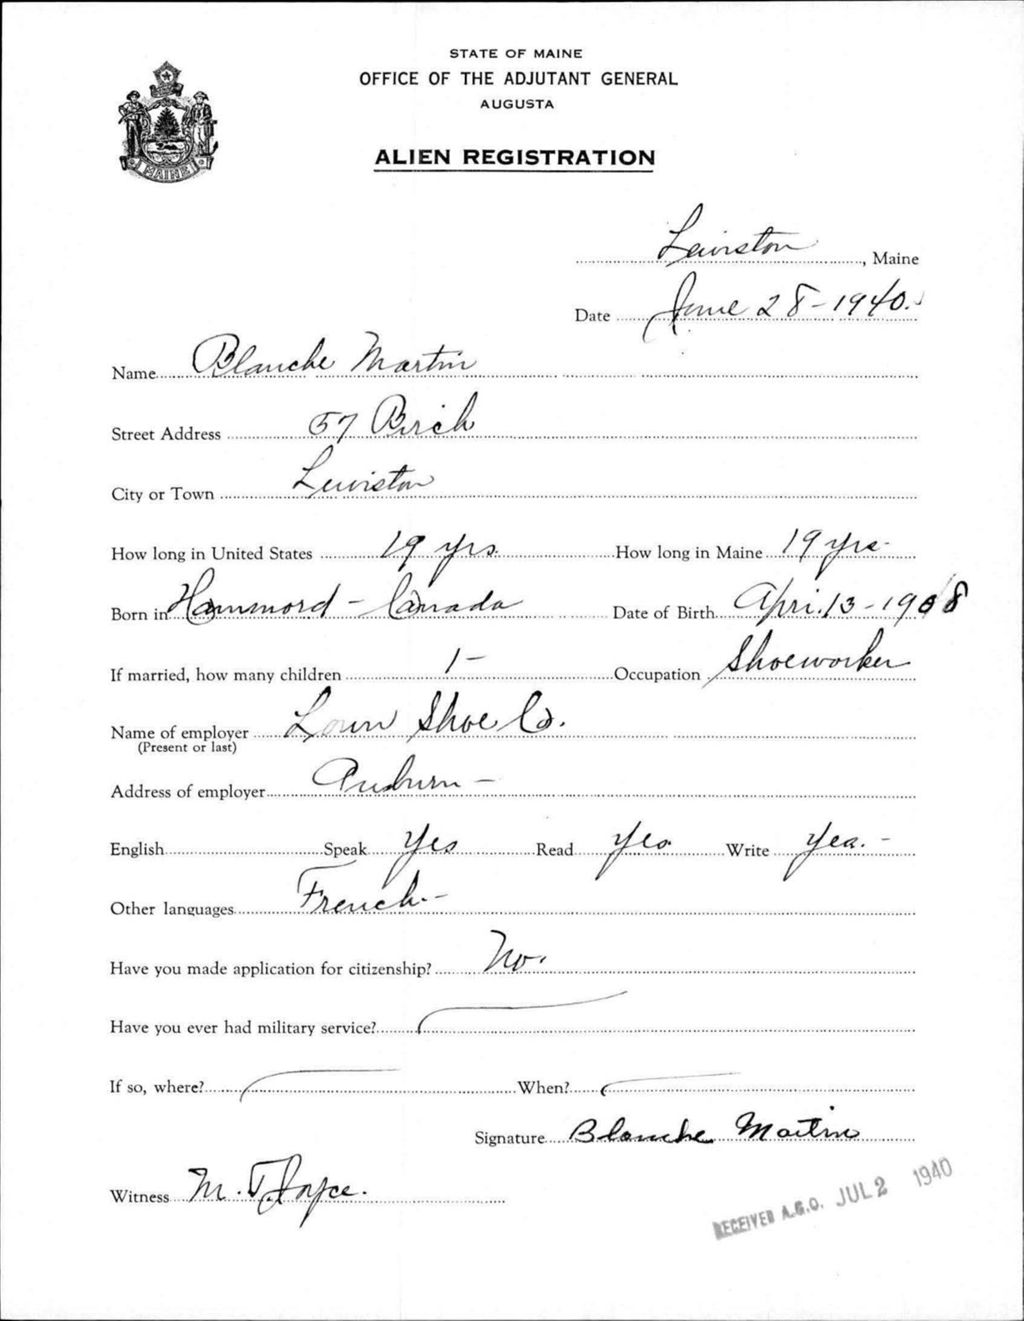 STATE OF MAINE
OFFICE OF THE ADJUTANT GENERAL
AUGUSTA
MAINE
ALIEN REGISTRATION
Lewiston, Maine
Date June 28-1940.
Name Blanche Martin
Street Address 57 Birch
City or Town Lewiston
How long in United States 19 yrs. How long in Maine 19 yrs-
Born in Hammord - Canada Date of Birth Apri. 13-1908
If married, how many children 1- Occupation Shoeworker
Name of employer Lown Shoe Co.
(Present or last)
Address of employer Auburn -
English Speak Yes Read Yes Write Yes. -
Other languages French. -
Have you made application for citizenship? No.
Have you ever had military service?
If so, where? When?
Signature Blanche Martin
Witness M. T. Joyce.
RECEIVED A.G.O. JUL 2 1940